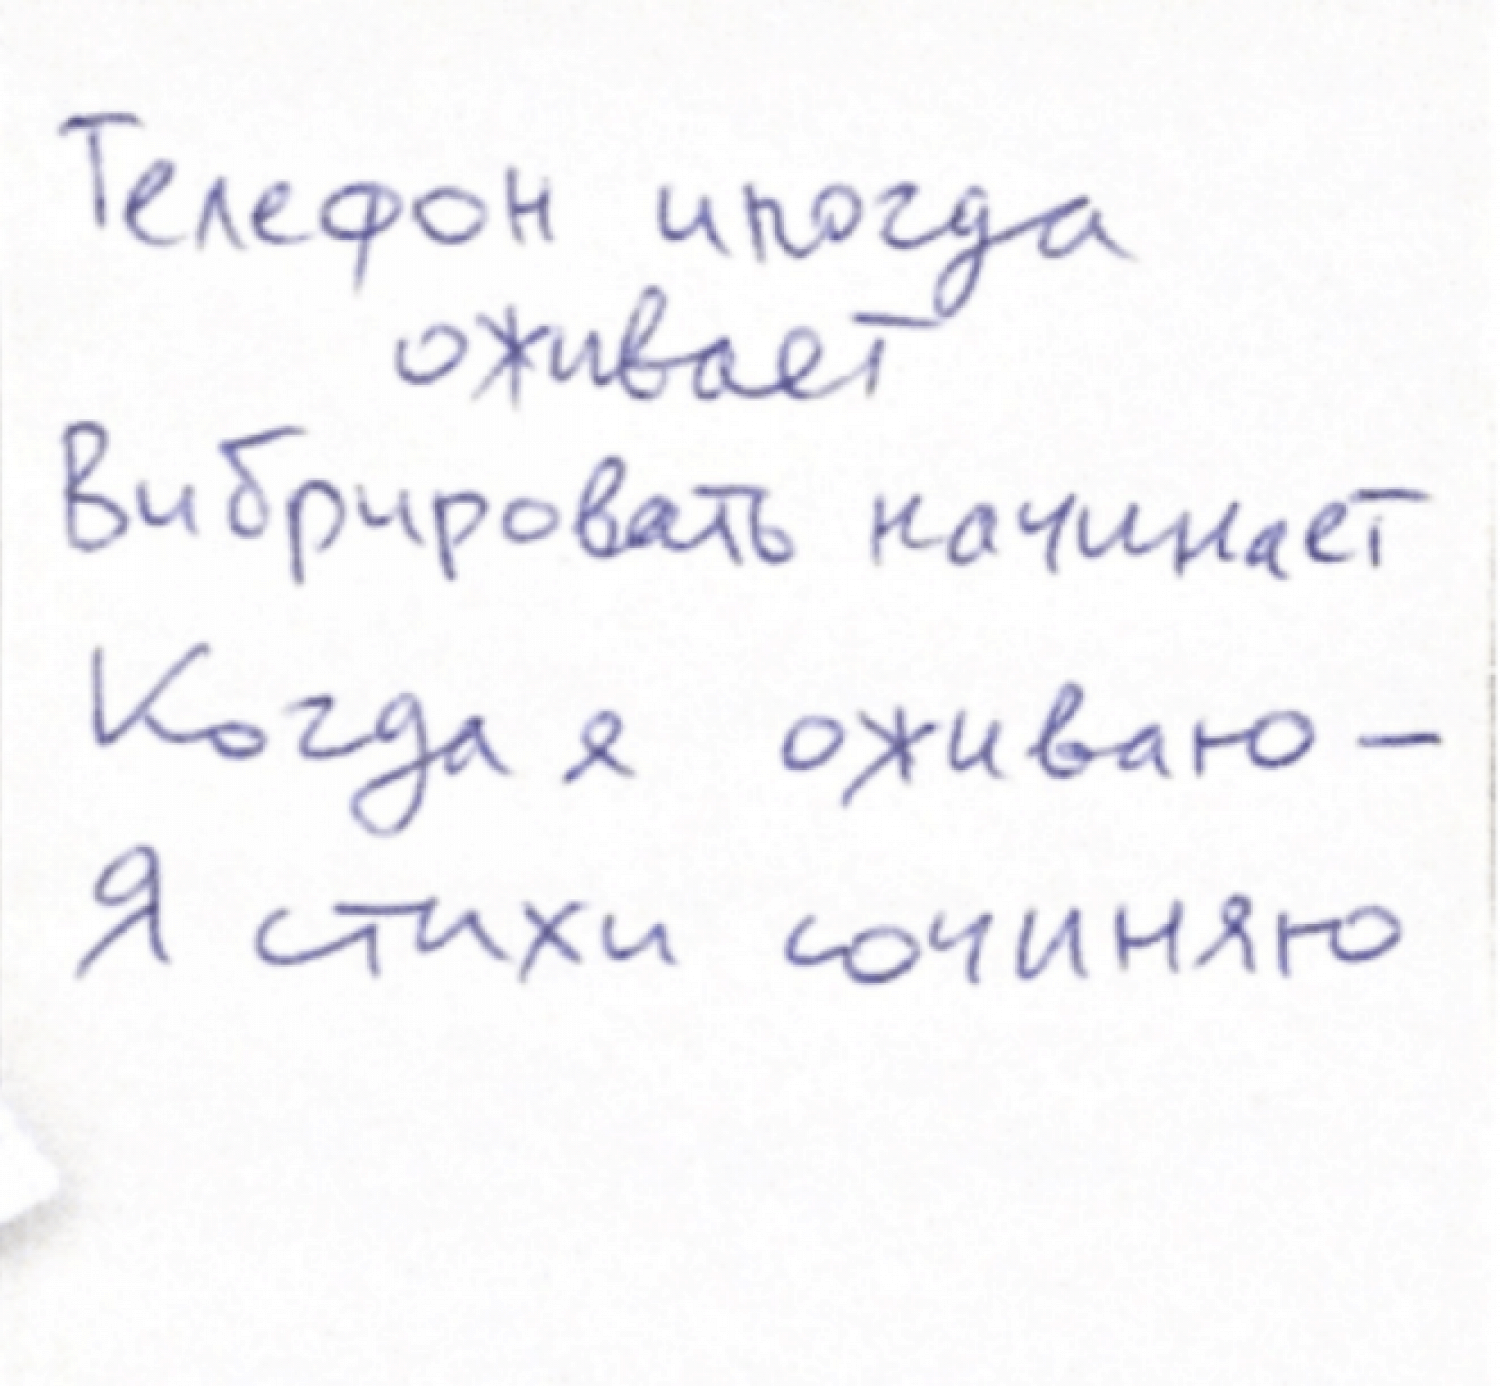 Телефон иногда
оживает
Вибрировать начинает
Когда я оживаю -
Я стихи сочиняю